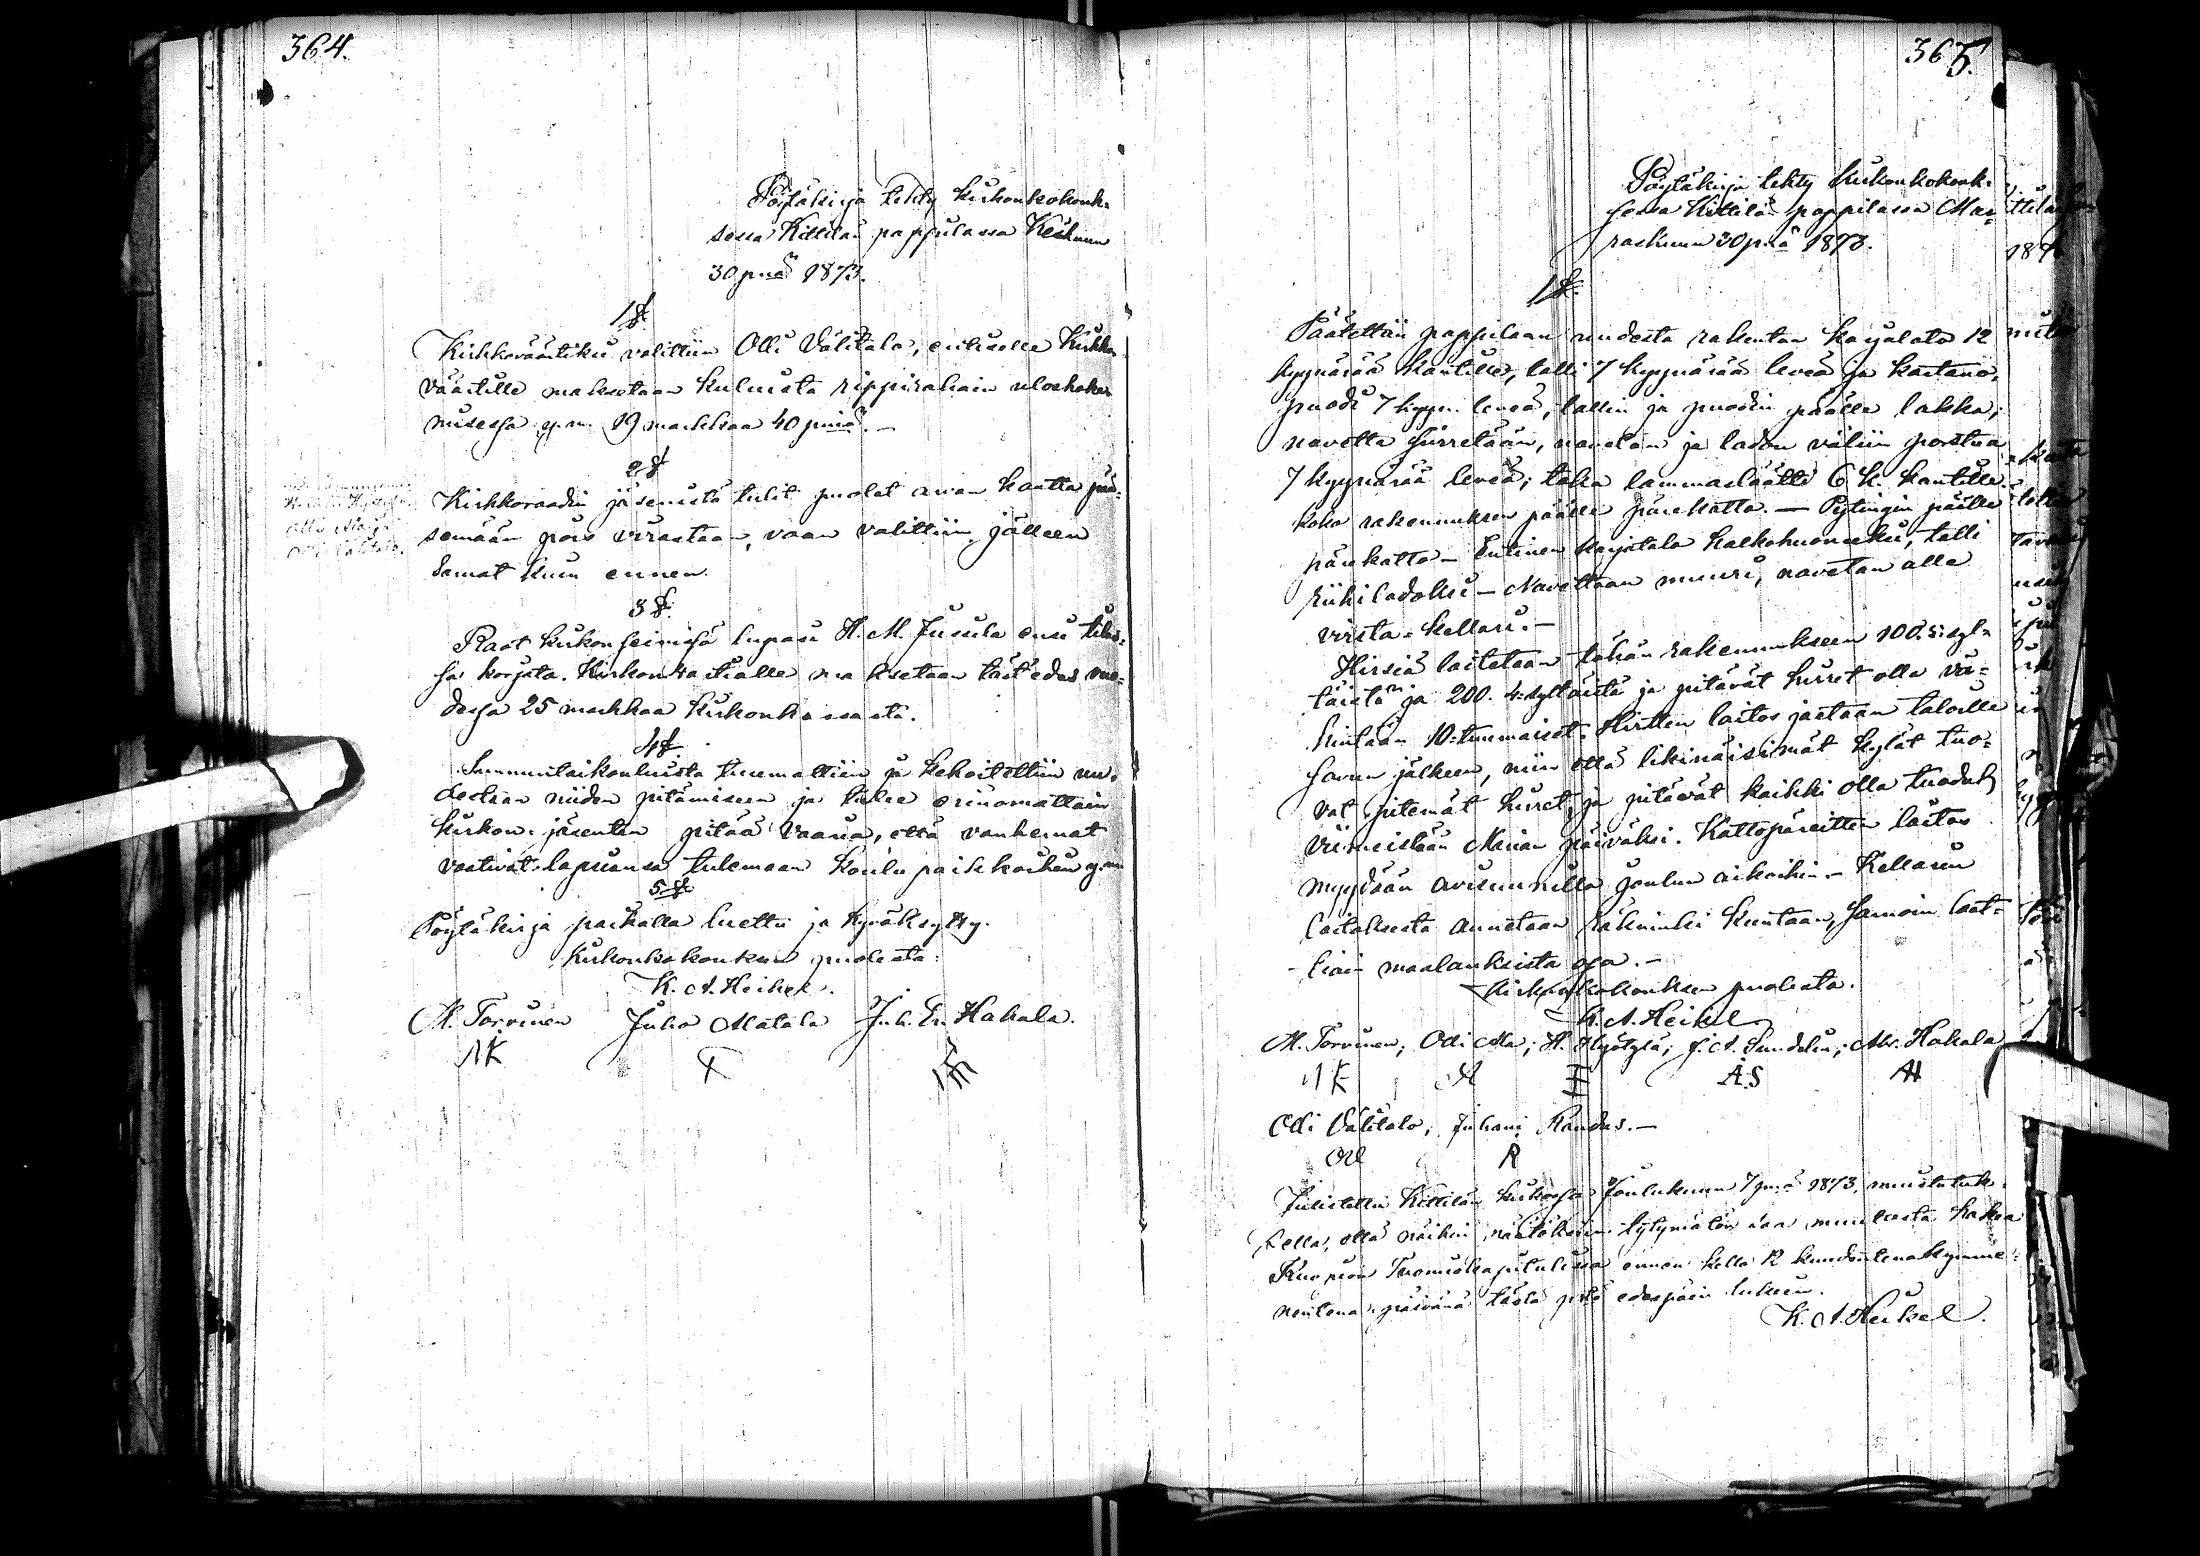 364.
Pöytäkirja tehty Kirkonkokouk-
sessa Kittilän pappilassa Kesäkuun
30 pnä 1873.
1 §.
Kirkkoväärtiksi valittiin Olli Välitalo, entiselle Kirkko-
väärtille maksetaan kuluista rippirahain uloskoko-
misessa y.m. 19 markkaa 40 pniä. –
2 §
Olli Välitalo.
Kirkkoraadin jäsenistä tulit puolet arvan kautta pää-
semään pois virastaan, vaan valittiin jälleen
Samat kuin ennen.
3 §.
Raot kirkon seinissä lupasi H. M. Jussila ensi tilas-
sa korjata. Kirkonvastialle maksetaan tästedes vuo-
dessa 25 markkaa Kirkonkassasta.
4 §.
Sunnuntaikouluista tuumattiin ja kehoitettiin uu-
destaan niiden pitämiseen ja tulee erinomattain
kirkon-jäsenten pitää vaaria, että vanhemat
vaativat lapsiansa tulemaan koulu paikkoihin y.m.
5 §
Pöytäkirja paikalla luettu ja hyväksytty.
Kirkonkokouksen puolesta:
K. A. Heikel.
M. Torvinen Juho Matala Juh. Er. Hakala.
365.
Pöytäkirja tehty Kirkonkokouk-
sessa Kittilän pappilassa Mar-
raskuun 30 pnä 1873.
1 §.
Päätettiin pappilaan uudesta rakentaa karjalato 12
kyynärää kantille, talli 7 kyynärää leveä ja kastano,
puodi 7 kyyn. leveä, tallin ja puodin päälle lakka,
navetta siirretään, navetan ja ladon väliin porstua
7 kyynärää leveä, taka lammasläätti 6 k. kantille.
koko rakennuksen päälle pärekatto. – Pytingin päälle
pärekatto – Entinen karjatalo halkohuoneeksi, talli
riihiladoksi – Navettaan muuri, navetan alle
virsta-kellari. –
Hirsiä laitetaan tähän rakennukseen 100. 5:syl-
täistä ja 200. 4:syltäistä ja pitävät hirret olla vä-
hintään 10:tuumaiset. Hirtten laitos jaetaan taloille
savun jälkeen, niin että likinäisimät kylät tuo-
vat pitemät hirret, ja pitävät kaikki olla tuodut
viimeistään Marian päiväksi. Kattopäreitten laitos
myydään avisunnilla joulun aikoihin – Kellarin
laitoksesta annetaan räkninki kuntaan, samoin laat-
tiain maalauksista
Kirkonkokouksen puolesta.
K. A. Heikel
M. Torvinen; Olli Ala; H. Hyötylä; J. A. Sundelin; Mr. Hakala
AS AH
Olli Välitalo, Juhani Randus. –
OW R
Julistettu Kittilän kirkossa Joulukuun 7 pnä 1873, muistutuk-
sella, että näihin päätöksiin tytymätön saa muutosta hakea
Kuopion Tuomiokapitulissa ennen kello 12 kundentenakymme-
nentenä päivänä tästä pstä edespäin lukein.
K. A. Heikel.